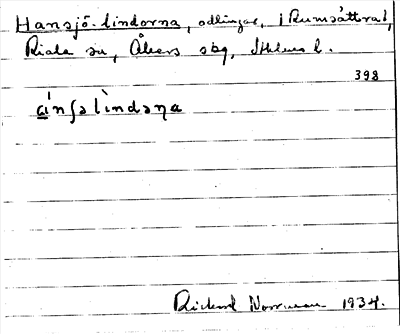 Hansjö-lindorna, odlingar, i Rumsättra,
Riala sn, Åkers sbg, Sthlms l.
398
a̲´nʃəlìndəɳa
Rickard Norrman 1934.